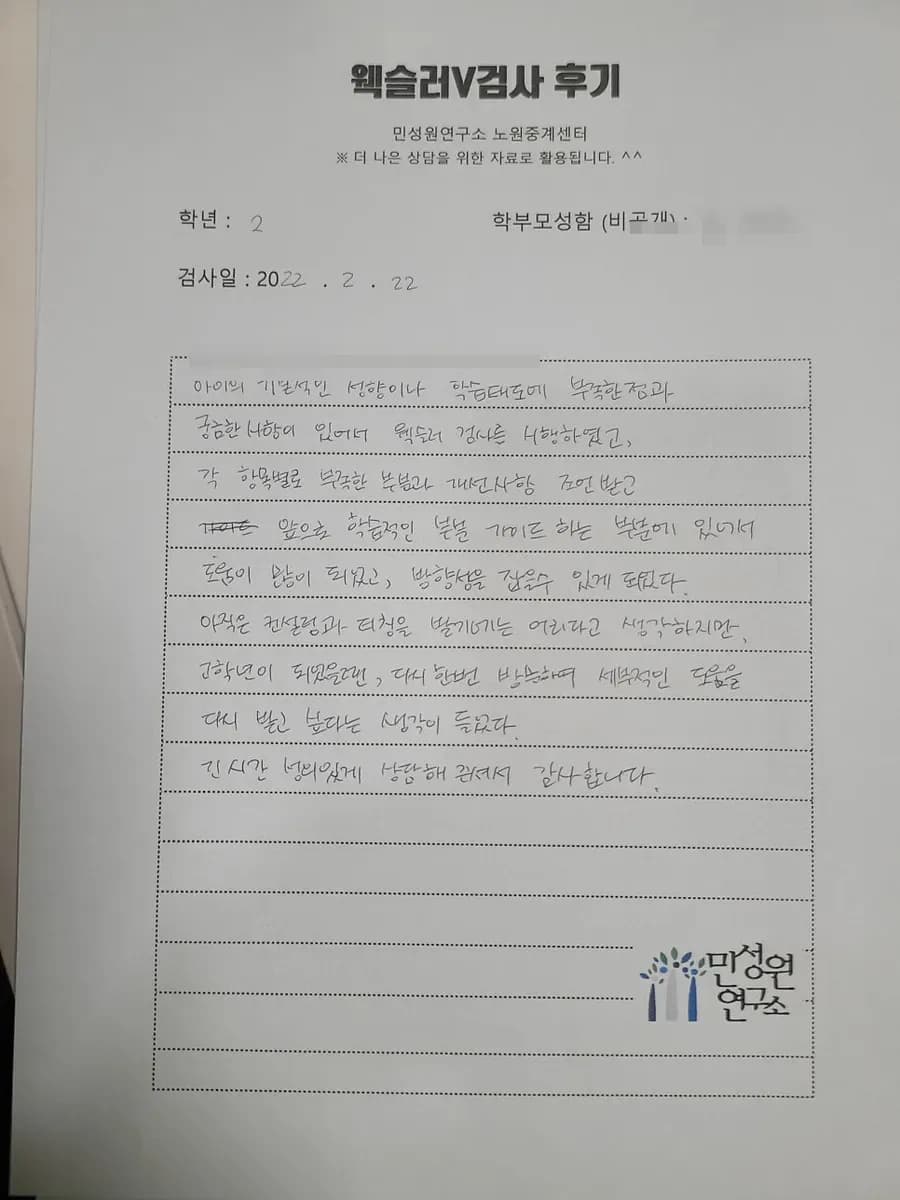 웩슬러V검사 후기
민성원연구소 노원중계센터
※ 더 나은 상담을 위한 자료로 활용됩니다. ^^
학년 : 2
학부모성함 (비공개) :
검사일 : 2022 . 2 . 22
아이의 기본적인 성향이나 학습태도에 부족한점과
궁금한 사항이 있어서 웩슬러 검사를 시행하였고,
각 항목별로 부족한 부분과 개선사항 조언 받고
앞으로 학습적인 부분 가이드 하는 부분에 있어서
도움이 많이 되었고, 방향성을 잡을수 있게 되었다.
아직은 컨설팅과 티칭을 받기에는 어리다고 생각하지만,
고학년이 되었을때, 다시한번 방문하여 세부적인 도움을
다시 받고 싶다는 생각이 들었다.
긴 시간 성의있게 상담해 주셔서 감사합니다.
민성원
연구소